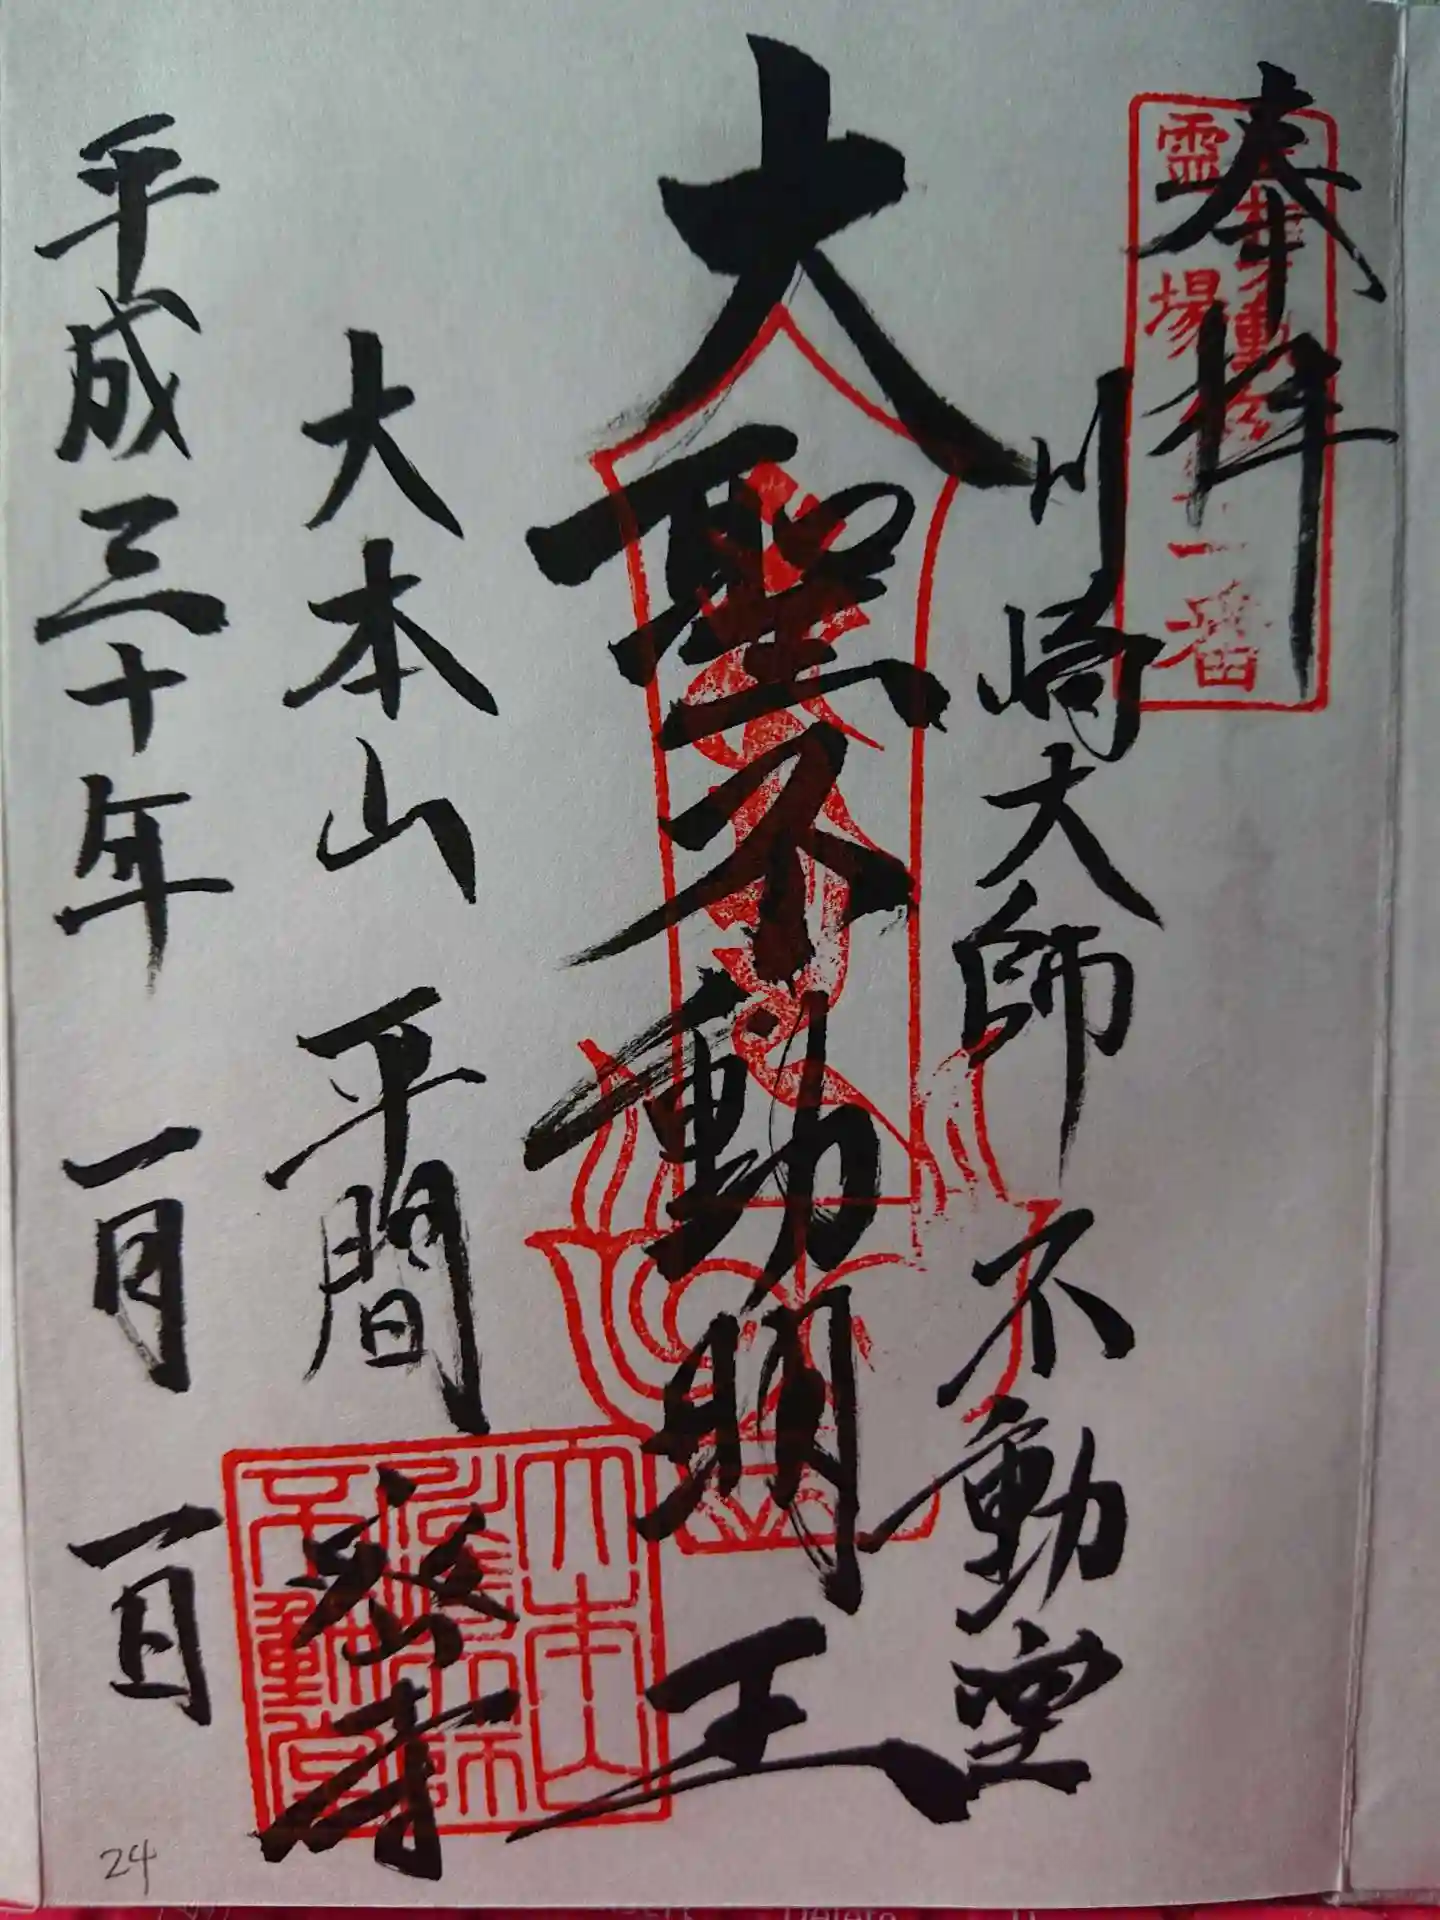 奉拝
霊場
一番
川崎大師 不動堂
大聖不動明王
大本山 平間密寺
大本山
不動堂
平成三十年 一月 一日
24
Delete